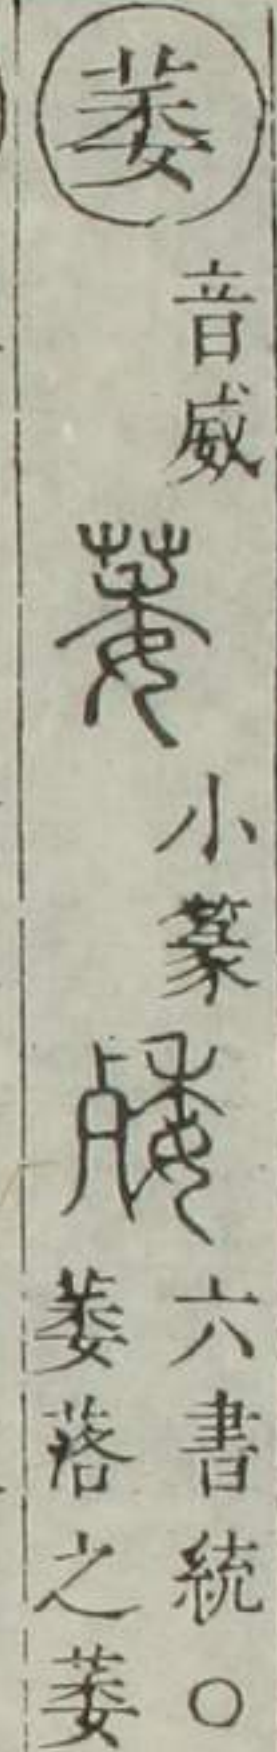 萎
音威
萎
小篆
𣨙
六書統〇
萎落之萎